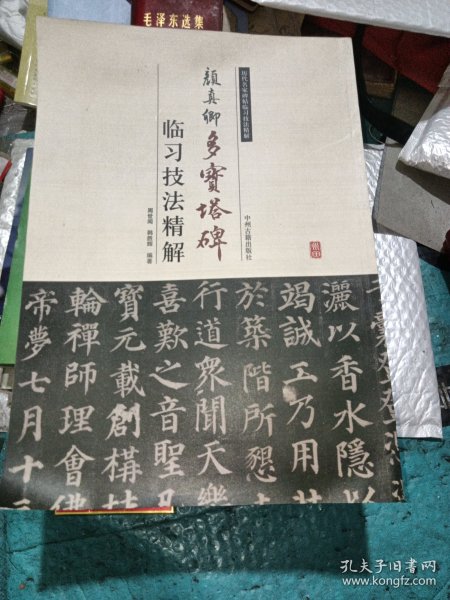 毛泽东选集
历代名家碑帖临习技法精解
颜真卿多寳塔碑
临习技法精解
周世闻 韩胜辉 编著
中州古籍出版社
灑以香水隱以
竭誠工乃用
於藥階所懇
行道衆聞天樂
喜歎之音聖
寳元載創構
輪禪師理會佛
帝夢七月十三
孔夫子旧书网
www.kongfz.com